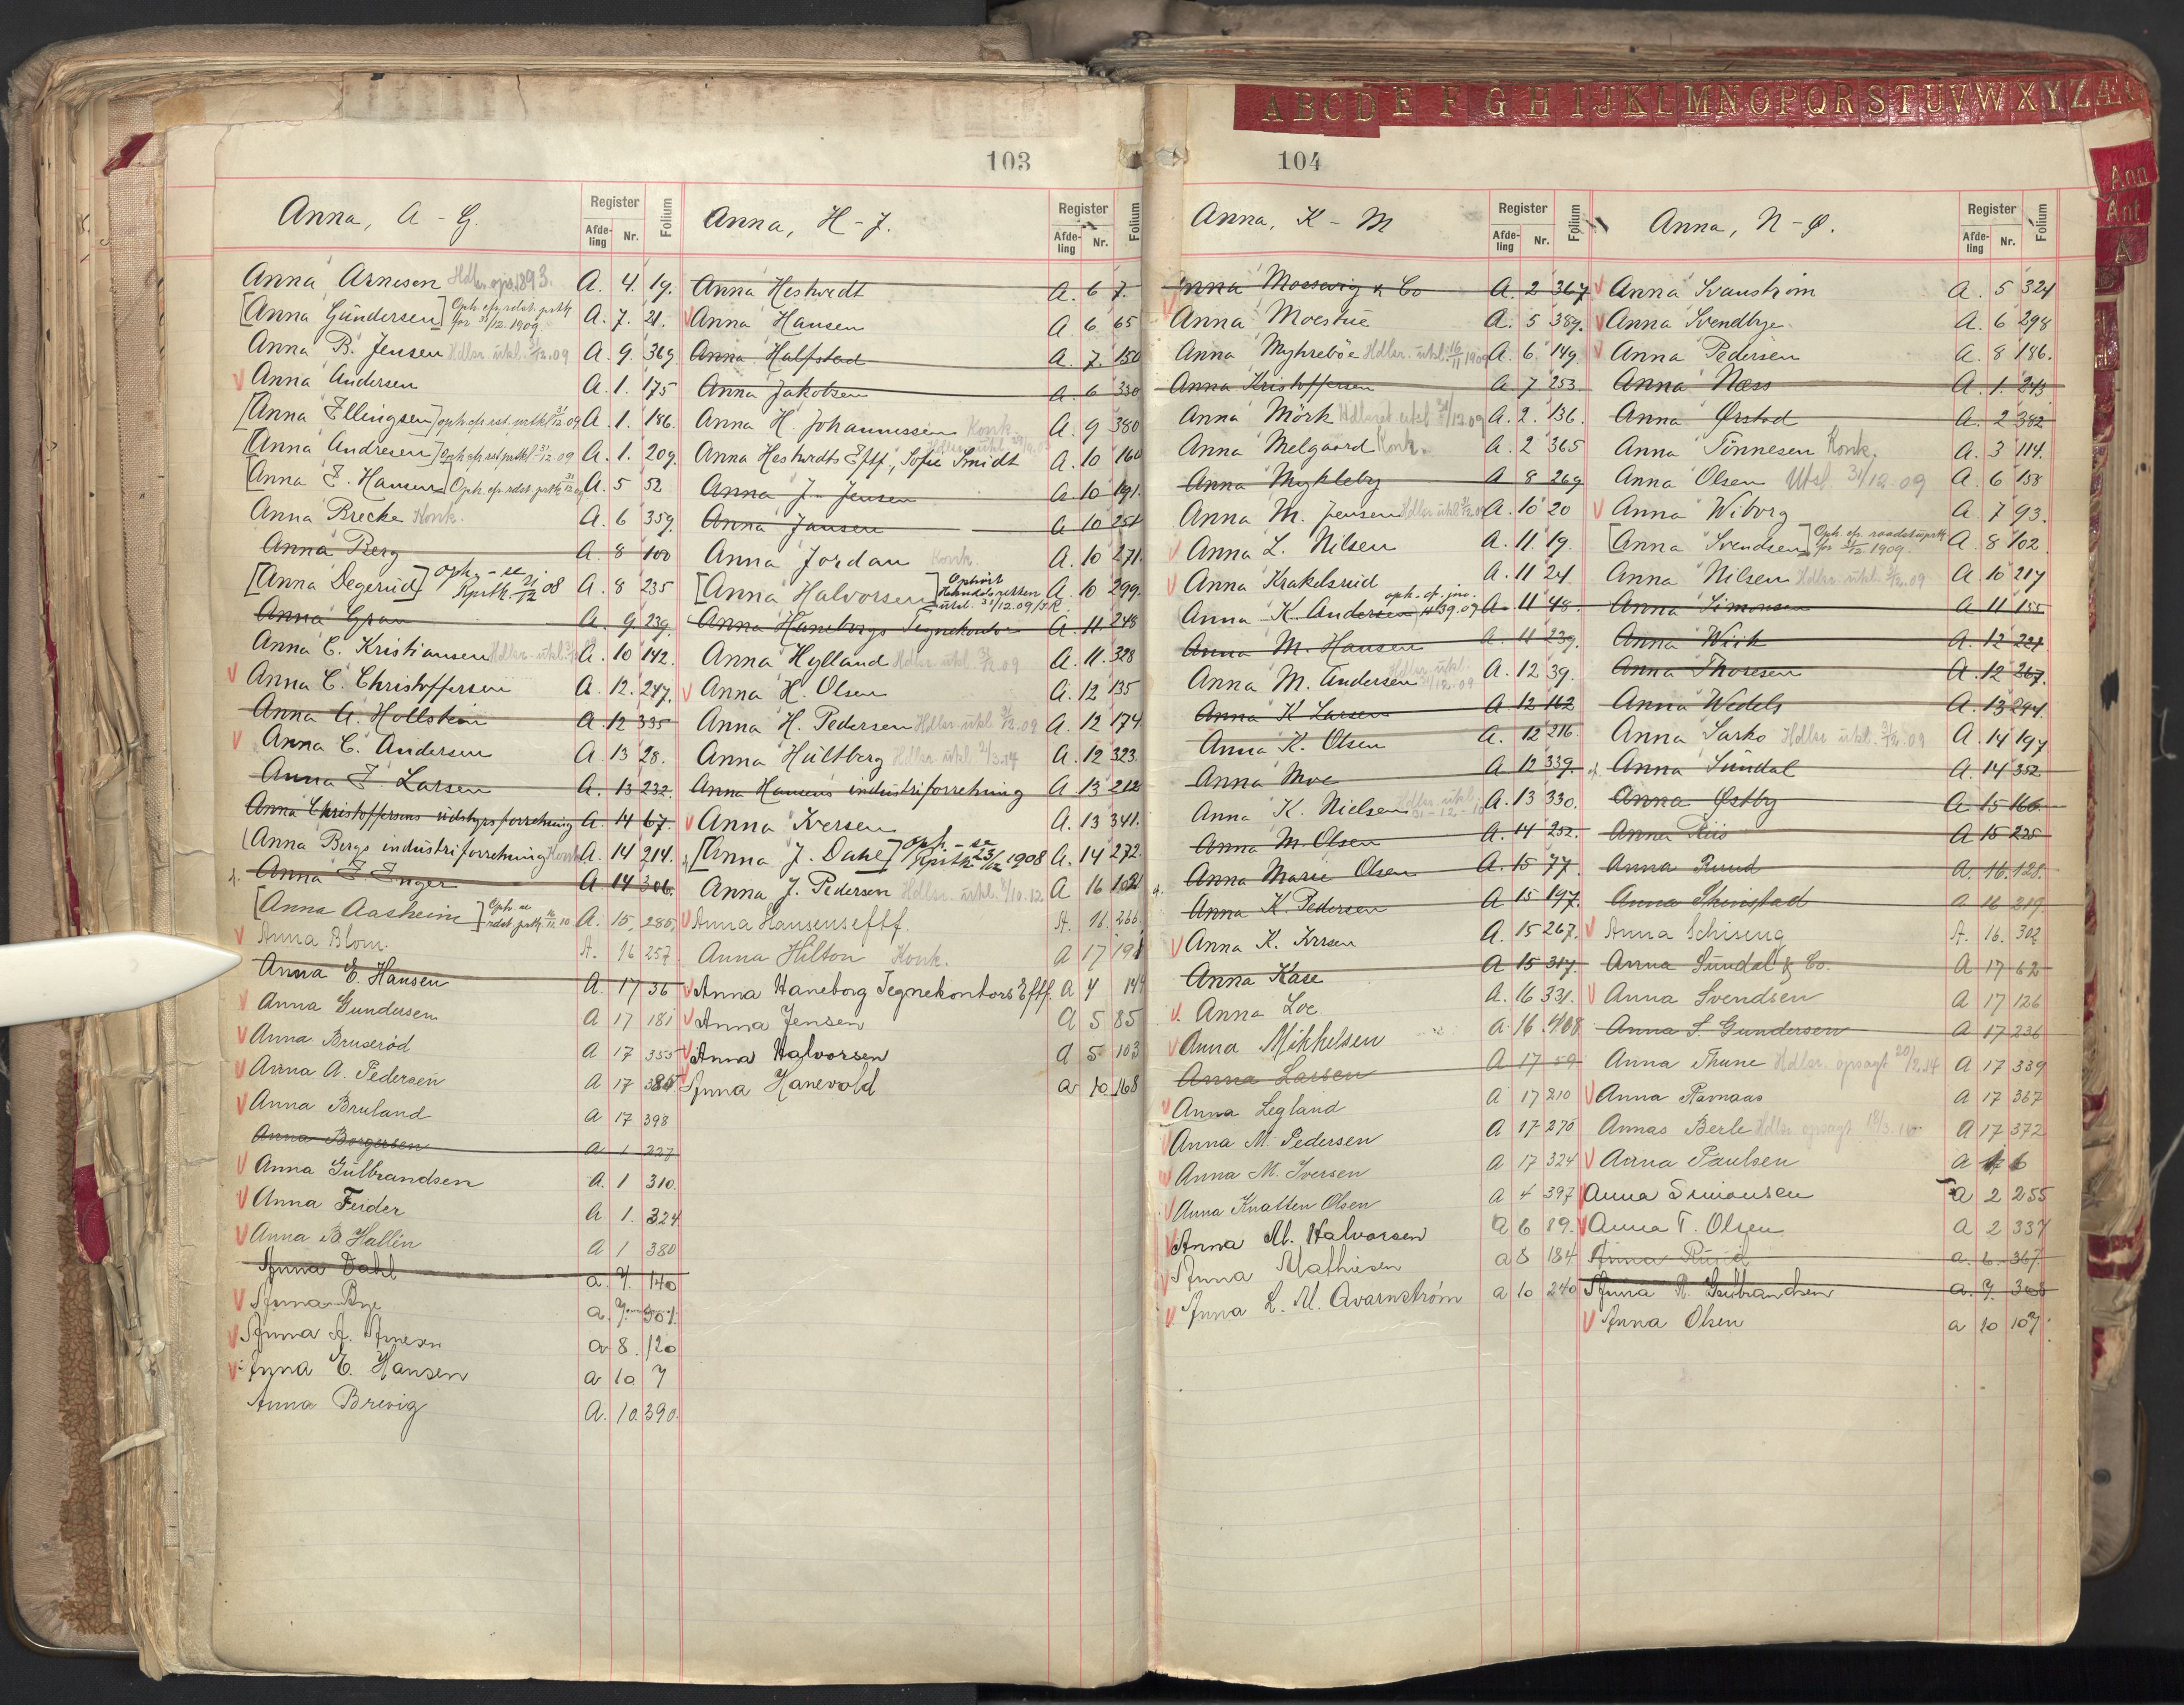 A B C D E F G H I J K L M N O P Q R S T U V W X Y Z Æ
Ann
Ant
A
103
Anna, A - G.
Register
Afde-
ling
Nr.
Folium
Anna Arnesen Hdlr. ops. 1893. A. 4. 19.
[Anna Gundersen] Oph. efr. rdst. prtk for 31/12 1909 A. 7. 21.
Anna B. Jensen Hdlsr. utsl. 31/12.09 A. 9. 369
V Anna Andersen A. 1. 175
[Anna Ellingsen] oph. ef. rst. 31/12 09 A. 1. 186.
[Anna Andresen] Oph. ef. rst. prtkl. 31/12 09 A. 1. 209.
[Anna E. Hansen] Oph. ef. rdst. prtk. 31/12 09 A. 5 52
Anna Brecke Konk. A. 6 359.
Anna Berg A. 8 100
[Anna Degerud] oph. - se Rprtk. 21/12 08 A. 8 235
Anna Gran A. 9 239.
Anna C. Kristiansen Hdlsr. utsl. A. 10 142.
V Anna C. Christoffersen A. 12. 247.
Anna A. Hollstein A. 12 335
V Anna C. Andersen A 13 28.
Anna F. Larsen A. 13 232.
Anna Christoffersens udstyrsforretning A. 14 67.
Anna Bergs industriforretning Konk. A. 14 214.
Anna F. Enger A 14 306.
[Anna Aasheim] Oph. se rdst. prtk. 12.10 A. 15. 285.
V Anna Blom. A. 16 257.
Anna E. Hansen A. 17 36
V Anna Gundersen A 17 181
V Anna Bruserød A 17 355
V Anna A. Pedersen A 17 385
V Anna Bruland A 17 398
Anna Borgersen A 1 227
V Anna Gulbrandsen A. 1 310.
V Anna Feider A 1. 324
V Anna B. Hallin A 1 380
Anna Dahl a. 7. 140
V Anna Bye a. 7. 301.
V Anna A. Arnesen a 8. 120
V Anna E. Hansen a 10 7
Anna Brevig A. 10. 390.
Anna, H - J.
Register
Afde-
ling
Nr.
Folium
Anna Hestvedt A. 6 7.
V Anna Hansen A 6 65
Anna Halfstad A. 7. 150
Anna Jakobsen A. 6 330
Anna H. Johannessen Konk. A. 9 380
Anna Hestvedts Eftf., Sofie Smidt A. 10 160
Anna J. Jensen A. 10 191.
Anna Jansen A 10 251
Anna Jordan Konk. A. 10 271.
[Anna Halvorsen] Ophørt Handelsretten utsl. 31/12.09 A. 10 299.
Anna Haneborgs Tegnekontor A. 11. 248
Anna Hylland Hdlsr. utsl. 31/12.09 A. 11. 328
V Anna H. Olsen A. 12 135
Anna H. Pedersen Hdlsr. utsl. 31/12.09 A. 12 174
Anna Hultberg Hdlsr. utsl. 2/3.14 A. 12 323.
Anna Hansens industriforretning A 13 212
V Anna Iversen A. 13 341.
[Anna J. Dahl] oph. - se Rprtk. 23/12 1908 A. 14 272.
Anna J. Pedersen Hdlsr. utsl. 2/10.12 A 16 102
V Anna Hansens eftf. A. 16 266
Anna Hilton Konk. A 17 198
V Anna Haneborg Tegnekontors Eftf. A 4 144
V Anna Jensen A 5 85
V Anna Halvorsen A 5 103
V Anna Hanevold a 10 168
104
Anna, K - M
Register
Afde-
ling
Nr.
Folium
Anna Mossevig & Co A. 2 367
V Anna Moestue A. 5 389.
Anna Myhrebøe Hdlsr. utsl. 16/11 1909 A. 6. 149.
Anna Kristoffersen A 7 253.
Anna Mörk Hdlsret utsl 31/12.09 A. 2. 136.
Anna Melgaard Konk. A. 2 365
Anna Mykleby A 8 269
Anna M. Jensen Hdlsr. utsl. 31/12.09 A. 10 20
V Anna L. Nilsen A. 11. 19.
V Anna Krakelsrud A. 11 24.
Anna K. Andersen A 11 48.
Anna M. Hansen A. 11 239.
Anna M. Andersen Hdlsr. utsl. 31/12.09 A. 12 39.
Anna K Larsen A 12 162
Anna K. Olsen A. 12 216.
Anna Moe A 12 339.
Anna K. Nielsen Hdlsr. utsl. 31-12-10 A. 13 330.
Anna M. Olsen A. 14 252.
Anna Marie Olsen A. 15 77.
Anna K. Pedersen A 15 197.
V Anna K. Iversen A. 15 267.
Anna Kase A 15 317.
V. Anna Loe A. 16 331.
V Anna Mikkelsen A. 16. 408
Anna Larsen A 17 59
V Anna Legland A 17 210
V Anna M. Pedersen A 17 270
V Anna M. Iversen A 17 324
V Anna Knatten Olsen A 4 397
V Anna M. Halvorsen A 6 89.
V Anna Mathisen a 8 184
V Anna L. M. Qvarnström a 10 240
Anna, N - Ø.
Register
Afde-
ling
Nr.
Folium
V Anna Svanström A. 5 324
V Anna Svendbye A. 6 298
V Anna Pedersen A. 8 186.
Anna Næss A. 1. 243
Anna Ørstad A. 2 382
Anna Tönnesen Konk. A. 3 114.
Anna Olsen Utsl. 31/12.09 A. 6 158
V Anna Wiborg A. 7 93.
[Anna Svendsen] Oph. efr. raadstuprtk for 31/12 1909. A. 8 102
Anna Nilsen Hdlsr. utsl. 31/12.09 A. 10 217
Anna Simonsen A 11 155
Anna Wiik A. 12 221
Anna Thoresen A. 12 267.
Anna Wedels A. 13 294.
Anna Sarko Hdlsr utsl. 31/12.09 A. 14 197
Anna Sundal A. 14 352
Anna Østby A. 15 166.
Anna Riis A 15 225
Anna Ruud A. 16. 128.
Anna Skinstad A 16 219
V Anna Schising A. 16. 302
Anna Sundal & Co. A 17 62
V Anna Svendsen A 17 126
Anna S. Gundersen A 17 236
Anna Thune Hdlsr. opsagt 20/2.14 A 17 339
V Anna Ramaas A 17 367
Annas Berle Hdlsr opsagt A 17 372
V Anna Paulsen A 1 6
V Anna Simonsen a 2 255
V Anna T. Olsen A 2 337
Anna Ruud a. 6. 367
Anna R. Gulbrandsen a. 7. 308
V Anna Olsen a 10 107.